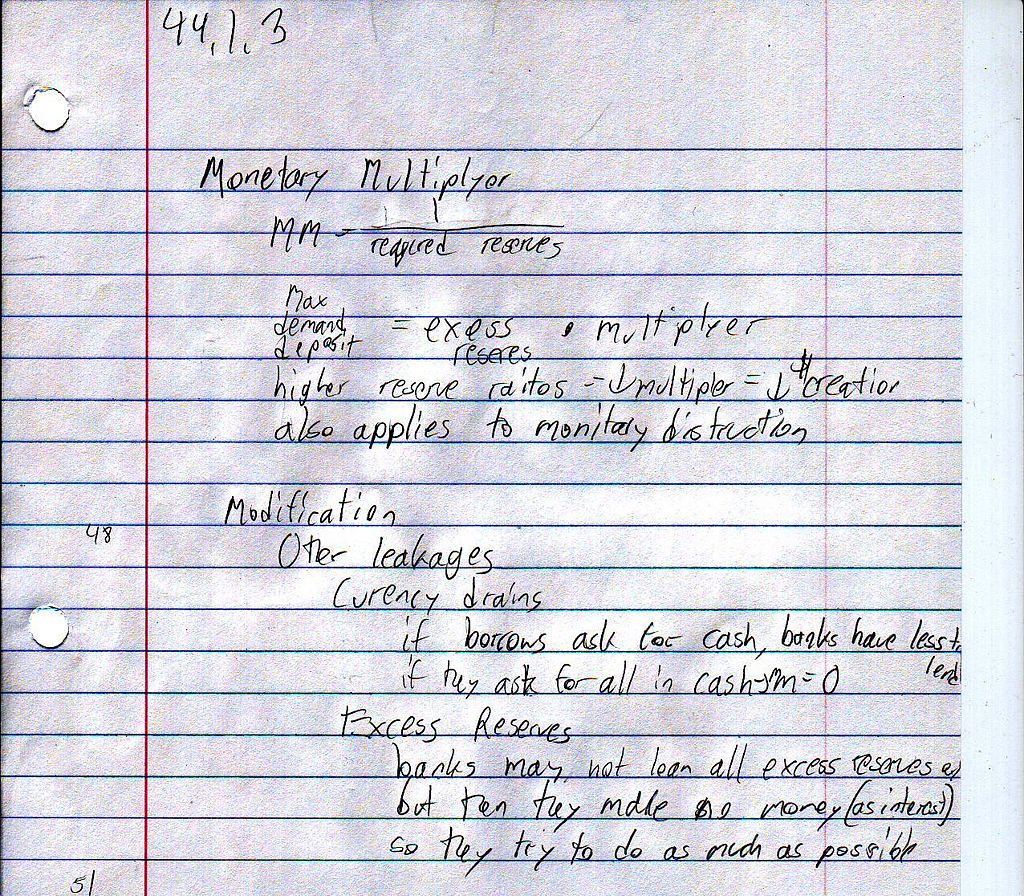 44.1.3
Monetary Multiplyer
MM = 1
required reserves
Max
demand
deposit
= exess • multiplyer
reseres
higher reserve raitos → ↓multipler = ↓$creation
also applies to monitary distruction
Modification
48
Other leakages
Curency drains
if borrows ask for cash, banks have less
lend
if they ask for all in cash → mm = 0
Excess Reserves
banks may not loan all excess reserves
but then they make no money (as interest)
so they try to do as much as possible
51